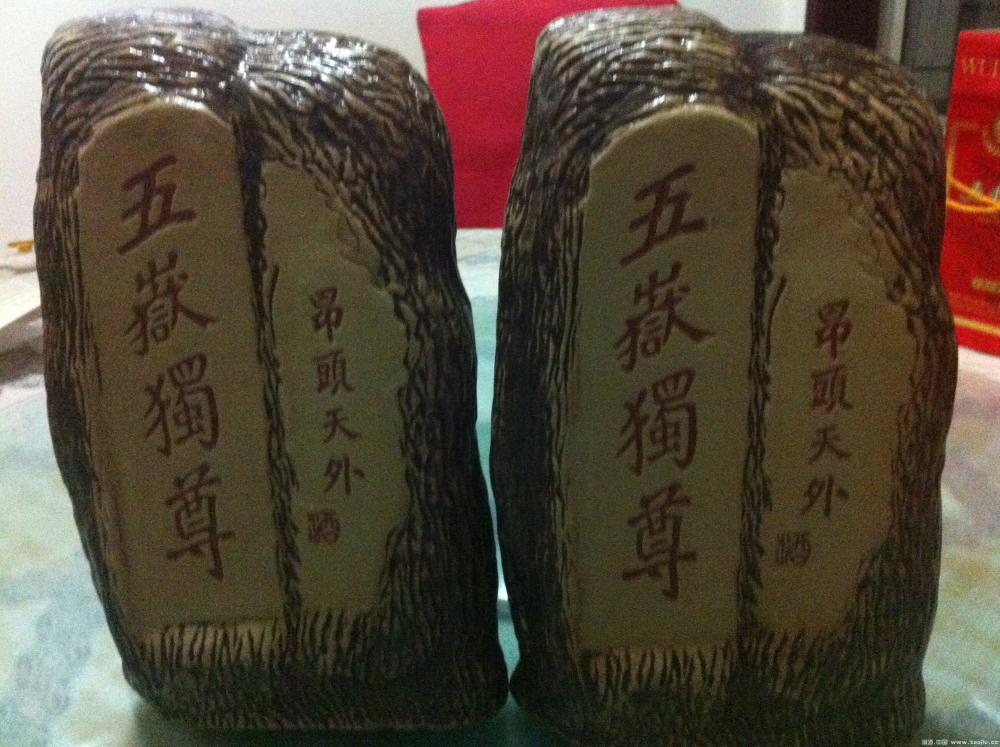 五嶽獨尊
昂頭天外
酒
五嶽獨尊
昂頭天外
酒
WU